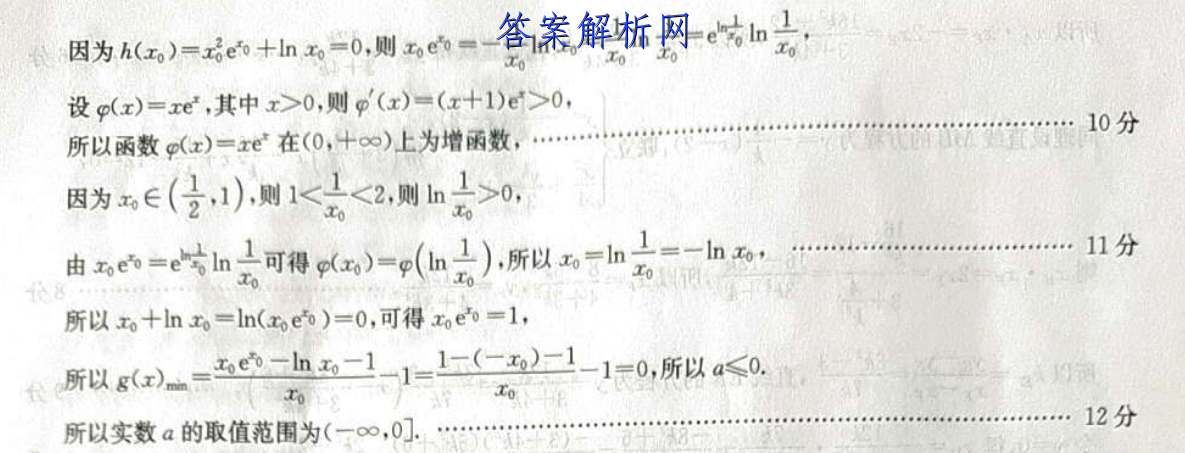 答案解析网
因为 h(x₀)=x₀²e^{x₀}+ln x₀=0,则 x₀e^{x₀}=-\frac{1}{x₀}ln x₀=\frac{1}{x₀}ln\frac{1}{x₀}=e^{ln\frac{1}{x₀}}ln\frac{1}{x₀},
设 φ(x)=xe^x,其中 x>0,则 φ′(x)=(x+1)e^x>0,
所以函数 φ(x)=xe^x 在(0,+∞)上为增函数, …… 10 分
因为 x₀∈(\frac{1}{2},1),则 1<\frac{1}{x₀}<2,则 ln\frac{1}{x₀}>0,
由 x₀e^{x₀}=e^{ln\frac{1}{x₀}}ln\frac{1}{x₀}可得 φ(x₀)=φ(ln\frac{1}{x₀}),所以 x₀=ln\frac{1}{x₀}=-ln x₀, …… 11 分
所以 x₀+ln x₀=ln(x₀e^{x₀})=0,可得 x₀e^{x₀}=1,
所以 g(x)_{min}=\frac{x₀e^{x₀}-ln x₀-1}{x₀}-1=\frac{1-(-x₀)-1}{x₀}-1=0,所以 a≤0.
所以实数 a 的取值范围为(-∞,0]. …… 12 分